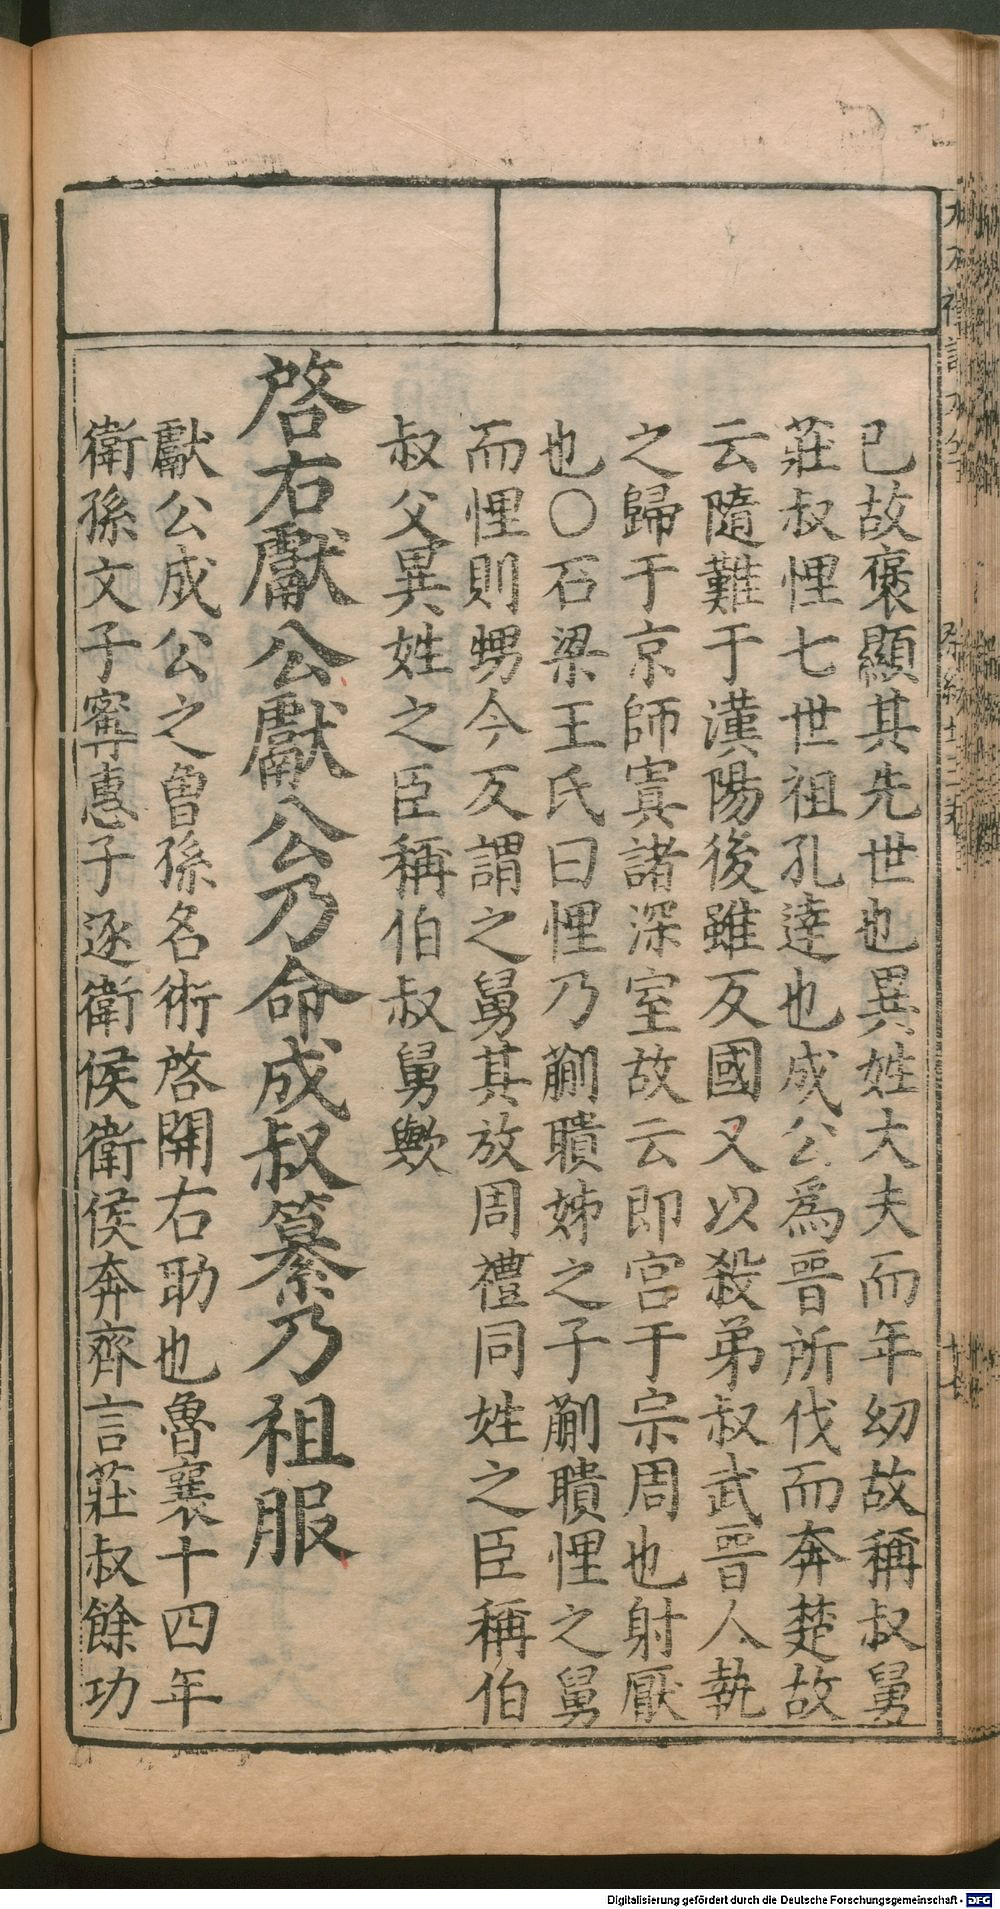 已故褒顯其先世也異姓大夫而年幼故稱叔舅
莊叔悝七世祖孔達也成公爲晉所伐而奔楚故
云隨難于漢陽後雖反國又以殺弟叔武晉人執
之歸于京師寘諸深室故云即宮于宗周也射厭
也○石梁王氏曰悝乃蒯聵姊之子蒯聵悝之舅
而悝則甥今反謂之舅其放周禮同姓之臣稱伯
叔父異姓之臣稱伯叔舅歟
啓右獻公獻公乃命成叔纂乃祖服
獻公成公之曾孫名衎啓開右助也魯襄十四年
衛孫文子寗惠子逐衛侯衛侯奔齊言莊叔餘功
Digitalisierung gefördert durch die Deutsche Forschungsgemeinschaft - DFG